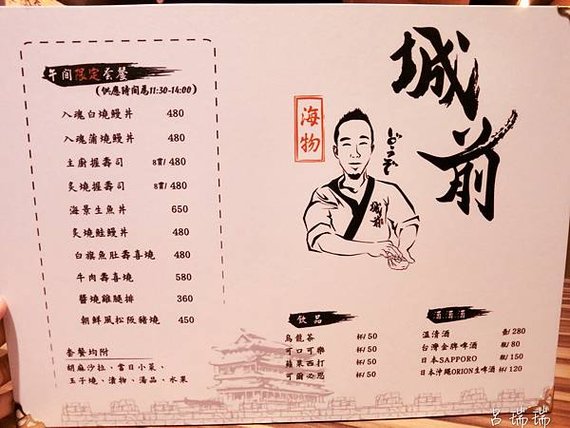 城前
海物
城前
午間限定套餐
(供應時間為11:30-14:00)
入魂白燒鰻丼 480
入魂蒲燒鰻丼 480
主廚握壽司 8貫/ 480
炙燒握壽司 8貫/ 480
海景生魚丼 650
炙燒鮭鰻丼 480
白旗魚肚壽喜燒 480
牛肉壽喜燒 580
醬燒雞腿排 360
朝鮮風松阪豬燒 450
套餐均附
胡麻沙拉、當日小菜、
玉子燒、漬物、湯品、水果
飲品
烏龍茶 杯/ 50
可口可樂 杯/ 50
蘋果西打 杯/ 50
可爾必思 杯/ 50
酒酒酒
溫清酒 壺/ 280
台灣金牌啤酒 瓶/ 80
日本SAPPORO 瓶/ 150
日本沖繩ORION生啤酒 杯/ 120
呂瑞瑞